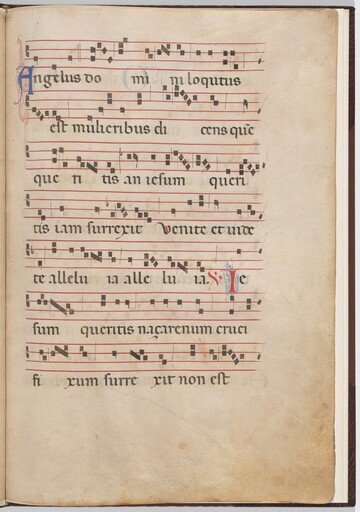 Angelus do mi ni loqutus
est mulieribus di cens que
que ri tis an iesum queri
tis iam surrexit Venite et uide
te allelu ia alle lu ia. V. Ie
sum queritis naçarenum cruci
fi xum surre xit non est